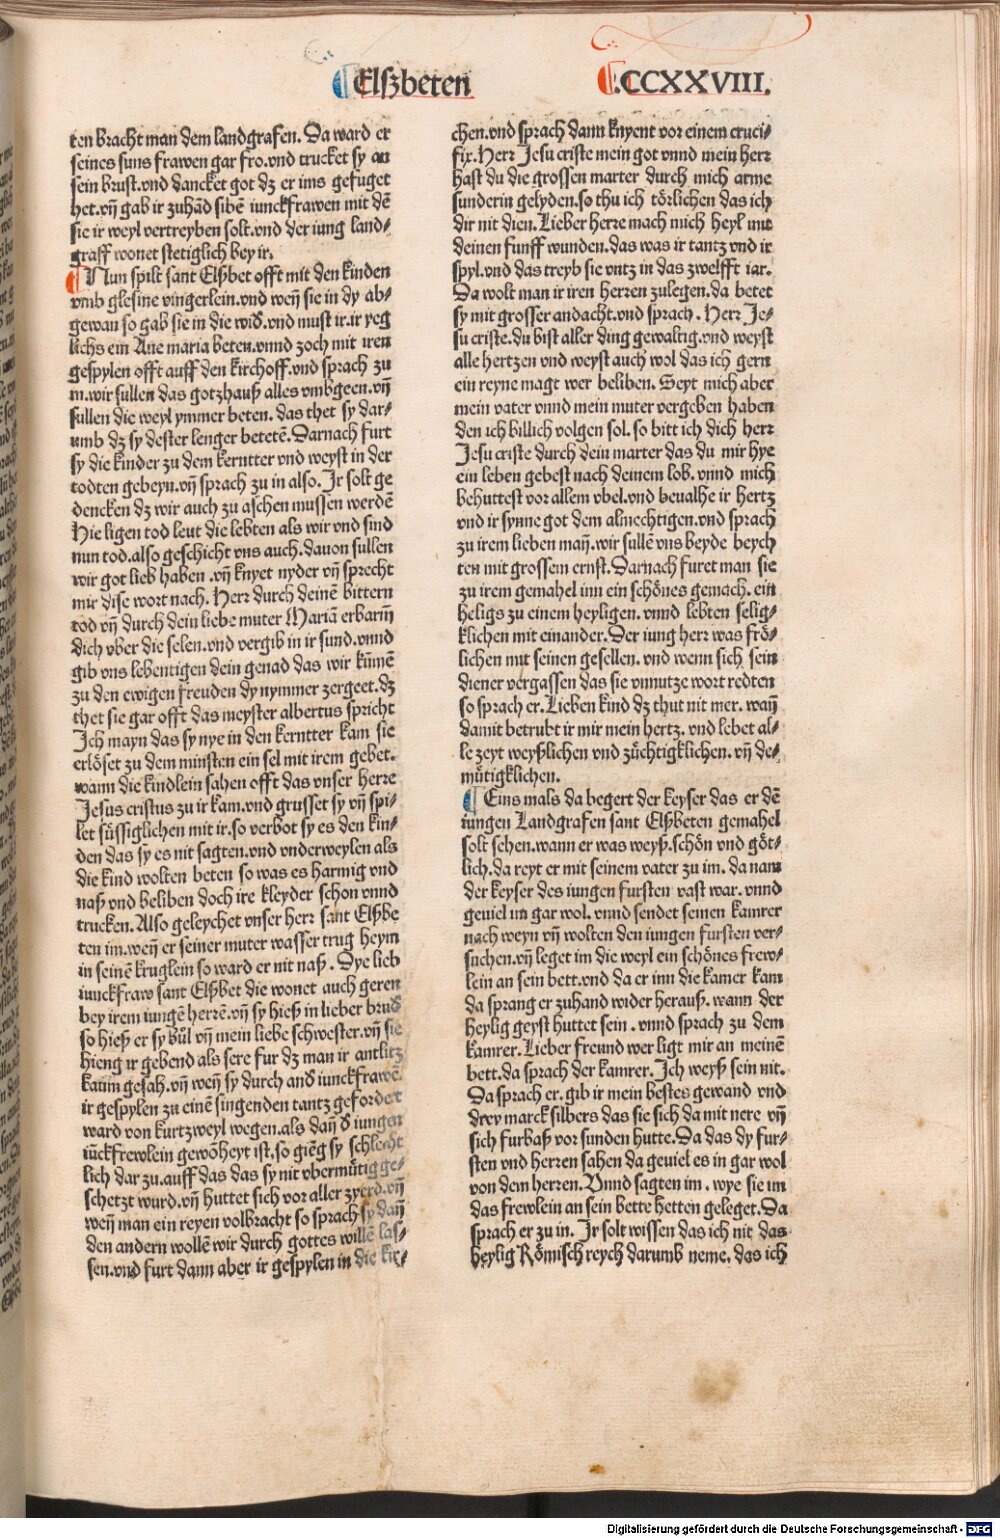 Elßbeten
.CCXXVIII.
ten bracht man dem landgrafen. Da ward er
seines suns frawen gar fro. vnd trucket sy an
sein brust. vnd dancket got dz er ims gefuget
het. vn̄ gab ir zuhād sibē iunckfrawen mit dē
sie ir weyl vertreyben solt. vnd der iung land⸗
graff wonet stetiglich bey ir.
Nun spilt sant Elßbet offt mit den kinden
vmb glesine vingerlein. vnd wen̄ sie in dy ab⸗
gewan so gab sie in die wid̄. vnd must ir. ir yeg
lichs ein Aue maria beten. vnnd zoch mit iren
gespylen offt auff den kirchoff. vnd sprach zu
in. wir sullen das gotzhauß alles vmbgeen. vn̄
sullen die weyl ymmer beten. das thet sy dar⸗
umb dz sy dester lenger betetē. Darnach furt
sy die kinder zu dem kerntter vnd weyst in der
todten gebeyn. vn̄ sprach zu in also. Ir solt ge
dencken dz wir auch zu aschen mussen werdē
Hie ligen tod leut die lebten als wir vnd sind
nun tod. also geschicht vns auch. dauon sullen
wir got lieb haben. vn̄ knyet nyder vn̄ sprecht
mir dise wort nach. Herr durch deinē bittern
tod vn̄ durch dein liebe muter Mariā erbarm̄
dich vber die selen. vnd vergib in ir sund. vnnd
gib vns lebentigen dein genad das wir kūmē
zu den ewigen freuden dy nymmer zergeet. dz
thet sie gar offt das meyster albertus spricht
Ich mayn das sy nye in den kerntter kam sie
erlöset zu dem minsten ein sel mit irem gebet.
wann die kindlein sahen offt das vnser herre
Jesus cristus zu ir kam. vnd grusset sy vn̄ spi⸗
let süssiglichen mit ir. so verbot sy es den kin⸗
den das sy es nit sagten. vnd vnderweylen als
die kind wolten beten so was es harmig vnd
naß vnd beliben doch ire kleyder schon vnnd
trucken. Also geleychet vnser herr sant Elßbe
ten im. wen̄ er seiner muter wasser trug heym
in seinē kruglein so ward er nit naß. Dye lieb
iunckfraw sant Elßbet die wonet auch geren
bey irem iungē herrē. vn̄ sy hieß in lieber brud̄
so hieß er sy bül vn̄ mein liebe schwester. vn̄ sie
hieng ir gebend als sere fur dz man ir antlitz
kaum gesah. vn̄ wen̄ sy durch and̄ iunckfrawē
ir gespylen zu einē singenden tantz gefordert
ward von kurtzweyl wegen. als dan̄ d̄ iungen
iūckfrewlein gewöheyt ist. so gieg̅ sy schlecht
lich dar zu. auff das das sy nit vbermütig ge⸗
schetzt wurd. vn̄ huttet sich vor aller zyerd. vn̄
wen̄ man ein reyen volbracht so sprach sy dan̄
den andern wollē wir durch gottes willē las⸗
sen. vnd furt dann aber ir gespylen in die kir⸗
chen. vnd sprach dann knyent vor einem cruci⸗
fix. Herr Jesu criste mein got vnnd mein herr
hast du die grossen marter durch mich arme
sunderin gelyden. so thu ich törlichen das ich
dir nit dien. Lieber herre mach mich heyl mit
deinen funff wunden. das was ir tantz vnd ir
spyl. vnd das treyb sie vntz in das zwelfft iar.
Da wolt man ir iren herren zulegen. da betet
sy mit grosser andacht. vnd sprach. Herr Je⸗
su criste. du bist aller ding gewaltig. vnd weyst
alle hertzen vnd weyst auch wol das ich gern
ein reyne magt wer beliben. Seyt mich aber
mein vater vnnd mein muter vergeben haben
den ich billich volgen sol. so bitt ich dich herr
Jesu criste durch dein marter das du mir hye
ein leben gebest nach deinem lob. vnnd mich
behuttest vor allem vbel. vnd beualhe ir hertz
vnd ir synne got dem almechtigen. vnd sprach
zu irem lieben man̄. wir sullē vns beyde beych
ten mit grossem ernst. Darnach furet man sie
zu irem gemahel inn ein schönes gemach. ein
heligs zu einem heyligen. vnnd lebten selig⸗
klichen mit einander. Der iung herr was frö⸗
lichen mit seinen gesellen. vnd wenn sich sein
diener vergassen das sie vnnutze wort redten
so sprach er. Lieben kind dz thut nit mer. wan̄
damit betrubt ir mir mein hertz. vnd lebet al⸗
le zeyt weyßlichen vnd züchtigklichen. vn̄ de⸗
mütigklichen.
Eins mals da begert der keyser das er dē
iungen Landgrafen sant Elßbeten gemahel
solt sehen. wann er was weyß. schön vnd göt⸗
lich. da reyt er mit seinem vater zu im. da nam
der keyser des iungen fursten vast war. vnnd
geuiel im gar wol. vnnd sendet seinen kamrer
nach weyn vn̄ wolten den iungen fursten ver⸗
suchen. vn̄ leget im die weyl ein schönes frew⸗
lein an sein bett. vnd da er inn die kamer kam
da sprang er zuhand wider herauß. wann der
heylig geyst huttet sein. vnnd sprach zu dem
kamrer. Lieber freund wer ligt mir an meinē
bett. da sprach der kamrer. Ich weyß sein nit.
Da sprach er. gib ir mein bestes gewand vnd
drey marck silbers das sie sich da mit nere vn̄
sich furbaß vor sunden hutte. Da das dy fur⸗
sten vnd herren sahen da geuiel es in gar wol
von dem herren. Vnnd sagten im. wye sie im
das frewlein an sein bette hetten geleget. Da
sprach er zu in. Ir solt wissen das ich nit das
heylig Römisch reych darumb neme. das ich
Digitalisierung gefördert durch die Deutsche Forschungsgemeinschaft - DFG